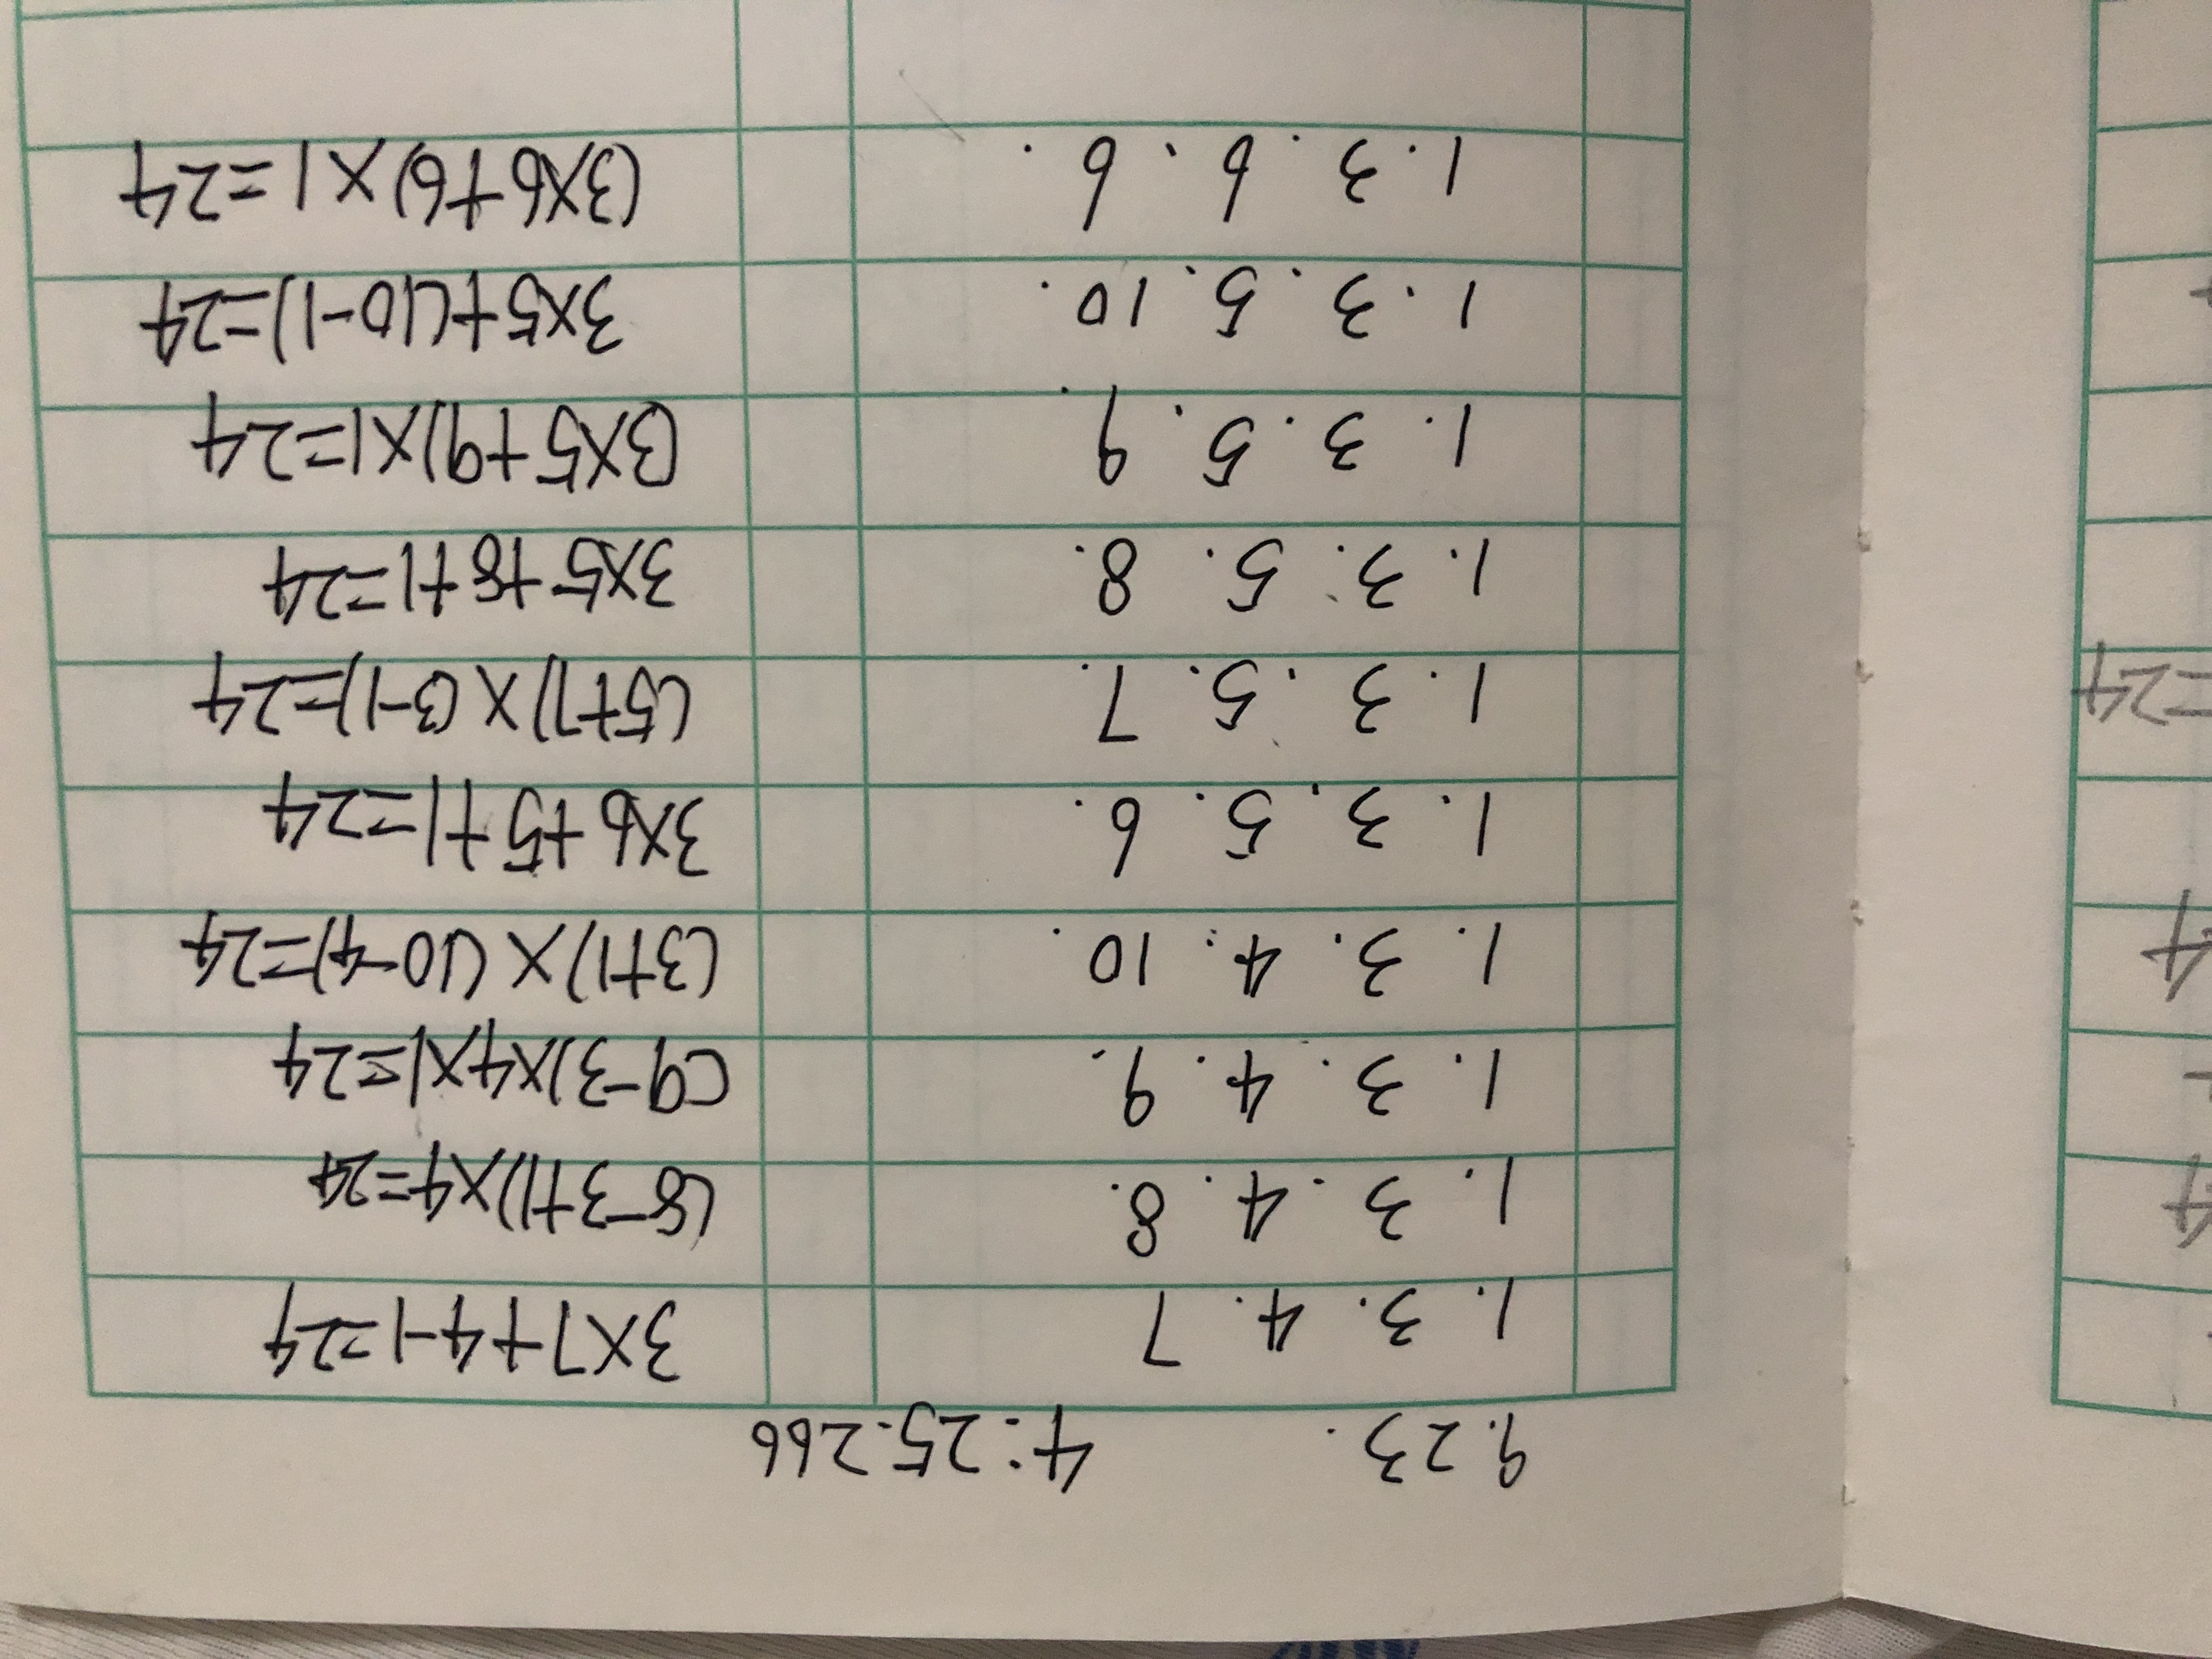 9.23. 4:25.266
1. 3. 4. 7 3×7+4-1=24
1. 3. 4. 8. (8-3+1)×4=24
1. 3. 4. 9. (9-3)×4×1=24
1. 3. 4. 10. (3+1)×(10-4)=24
1. 3. 5. 6. 3×6+5+1=24
1. 3. 5. 7. (5+7)×(3-1)=24
1. 3. 5. 8. 3×5+8+1=24
1. 3. 5. 9. (3×5+9)×1=24
1. 3. 5. 10. 3×5+(10-1)=24
1. 3. 6. 6. (3×6+6)×1=24
=24
4
4